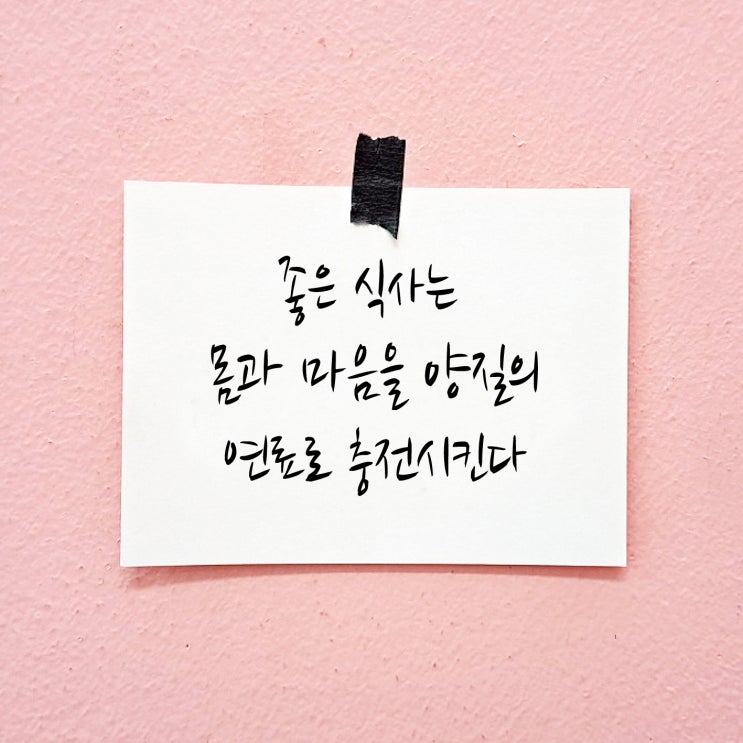 좋은 식사는
몸과 마음을 양질의
연료로 충전시킨다